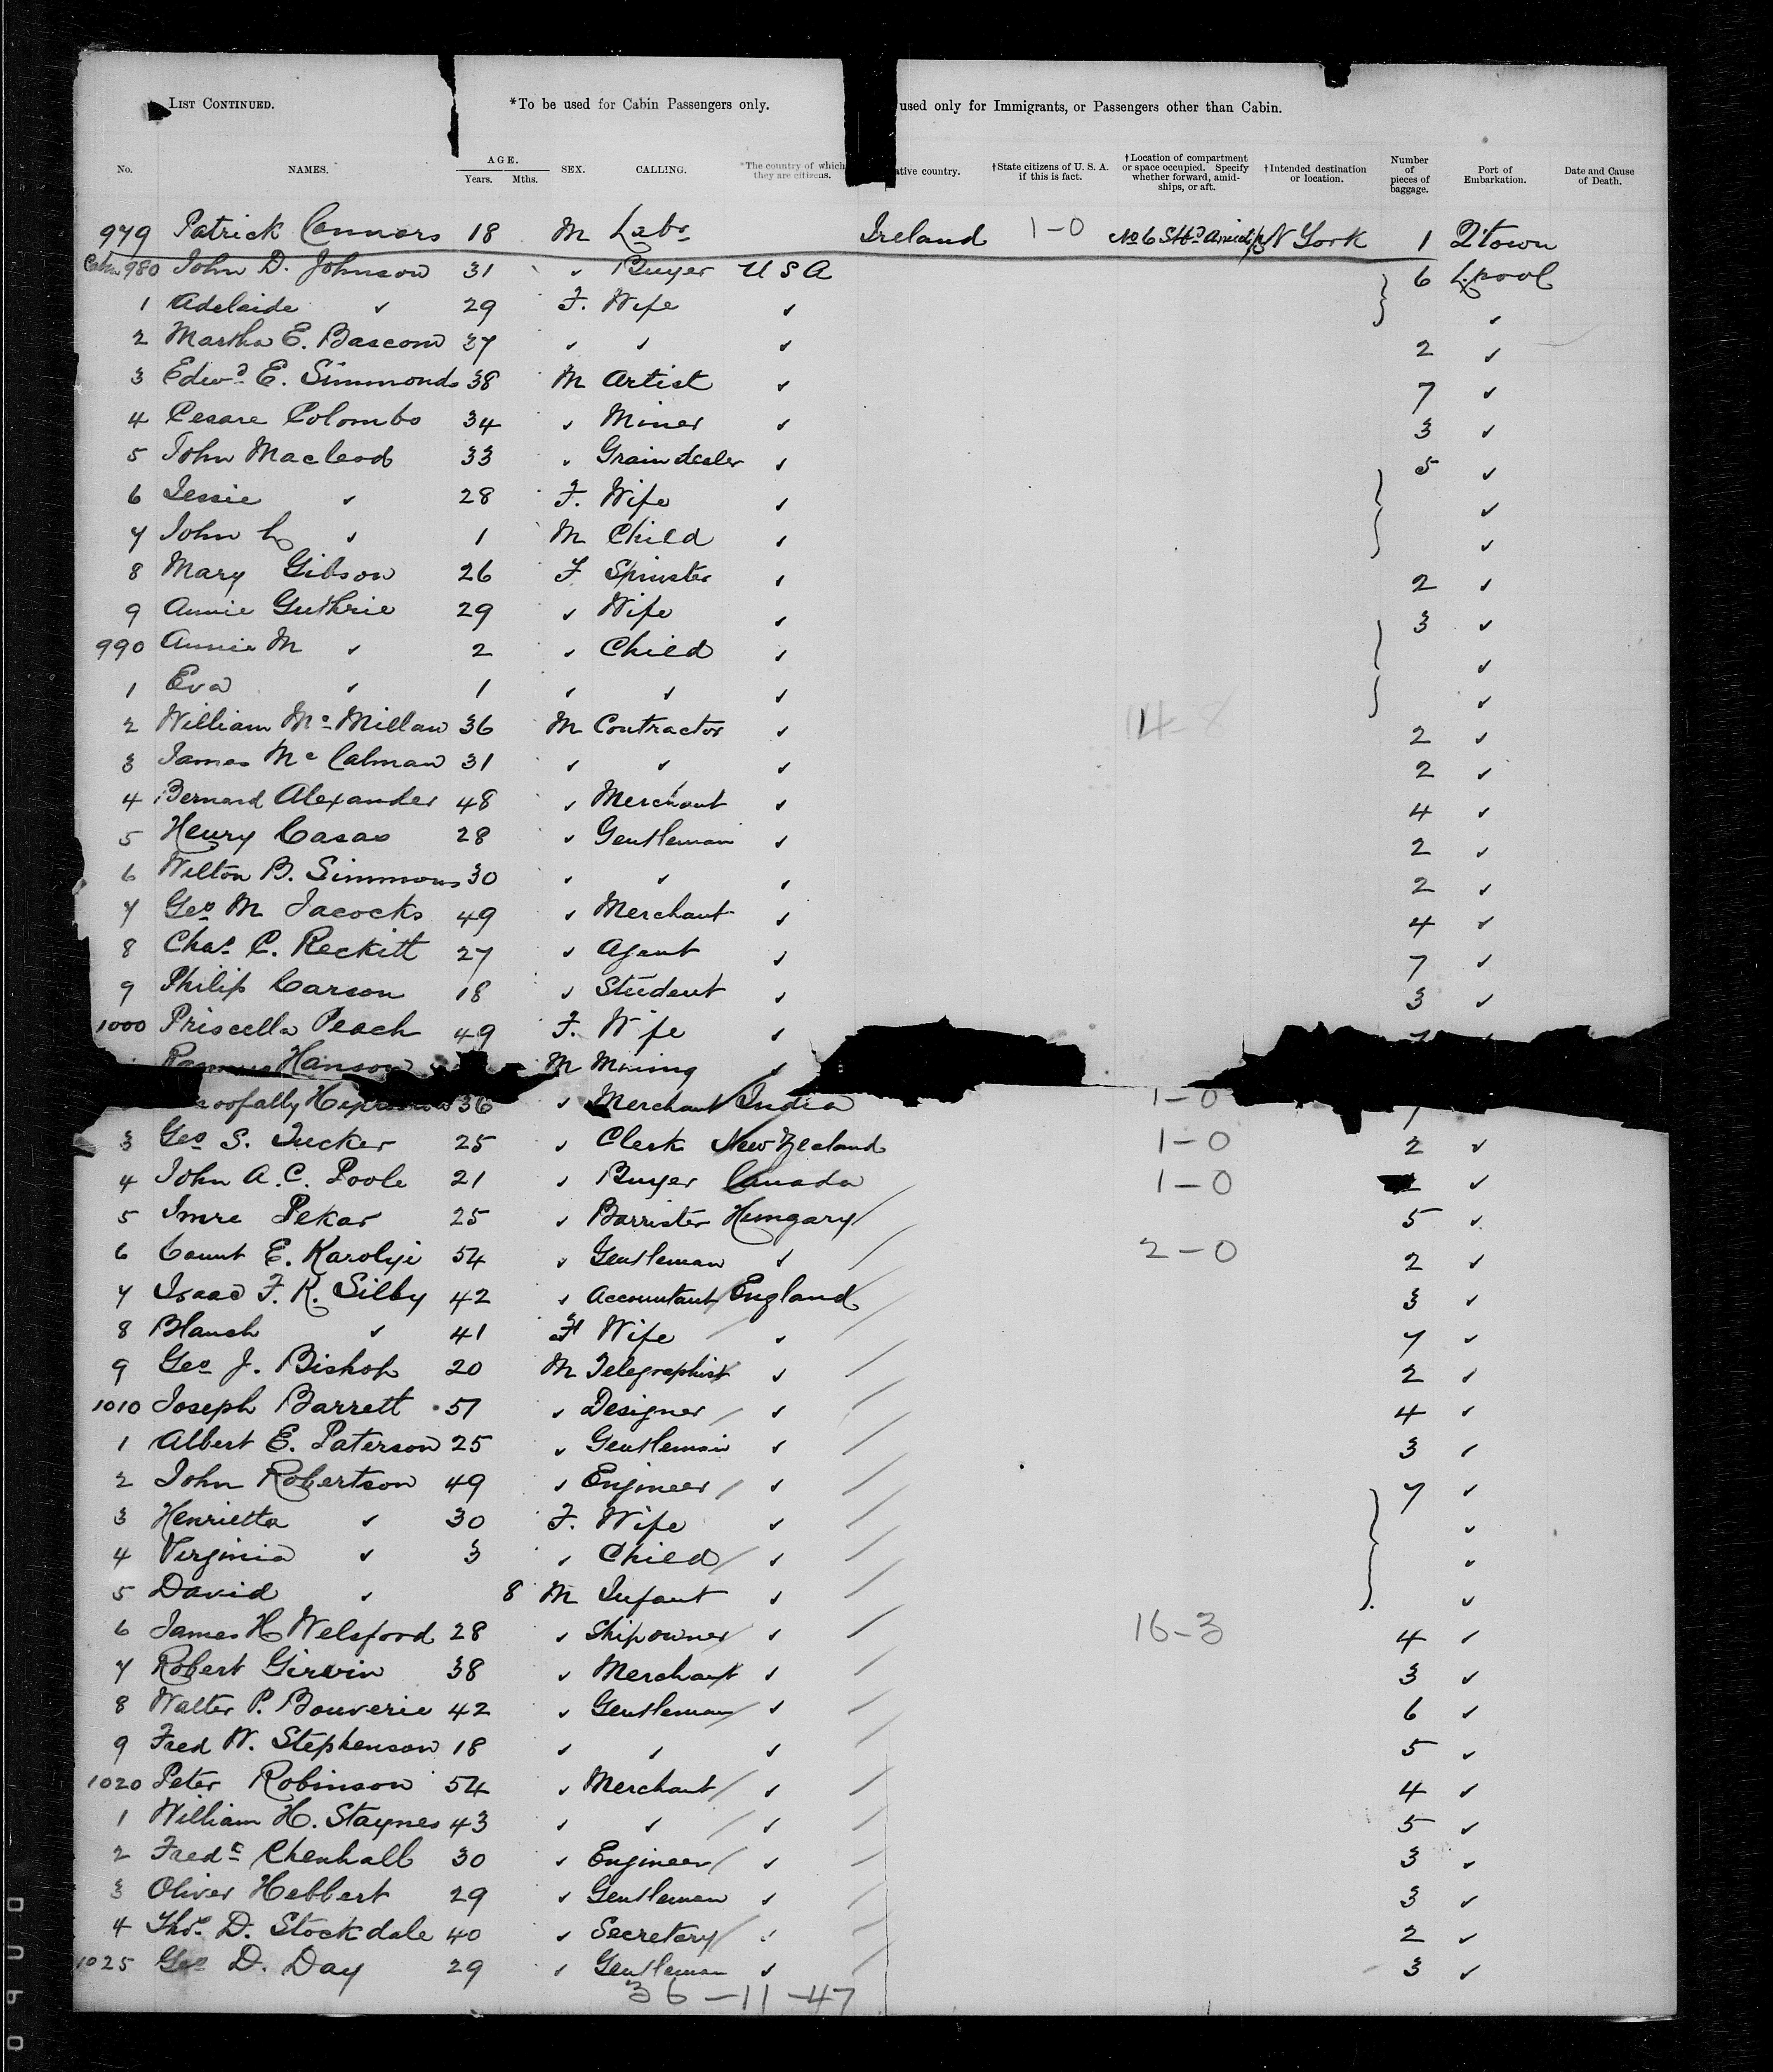 LIST CONTINUED. *To be used for Cabin Passengers only. used only for Immigrants, or Passengers other than Cabin.
No. NAMES. AGE. Years. Mths. SEX. CALLING. *The country of which they are citizens. ative country. †State citizens of U. S. A. if this is fact. †Location of compartment or space occupied. Specify whether forward, amidships, or aft. †Intended destination or location. Number of pieces of baggage. Port of Embarkation. Date and Cause of Death.
979 Patrick Connors 18 M Labr Ireland 1-0 No 6 Stbd Amids N York 1 Q'town
Cabin 980 John D. Johnson 31 " Buyer U S A 6 L.pool
1 Adelaide " 29 F. Wife " "
2 Martha E. Bascom 37 " " " 2 "
3 Edwd E. Simmonds 38 M Artist " 7 "
4 Cesare Colombo 34 " Miner " 3 "
5 John Macleod 33 " Grain dealer " 5 "
6 Jessie " 28 F. Wife " "
7 John " 1 M Child " "
8 Mary Gibson 26 F Spinster " 2 "
9 Annie Guthrie 29 " Wife " 3 "
990 Annie M " 2 " Child " "
1 Eva " 1 " " " "
2 William Mc Millan 36 M Contractor " 14-8 2 "
3 James Mc Calman 31 " " " 2 "
4 Bernard Alexander 48 " Merchant " 4 "
5 Henry Casao 28 " Gentleman " 2 "
6 Wilton B. Simmons 30 " " " 2 "
7 Geo M Jacocks 49 " Merchant " 4 "
8 Chas. C. Reckitt 27 " Agent " 7 "
9 Philip Carson 18 " Student " 3 "
1000 Priscella Peach 49 F. Wife "
Hanson M Mining "
36 " Merchant India 1-0
3 Geo S. Tucker 25 " Clerk New Zealand 1-0 2 "
4 John A. C. Poole 21 " Buyer Canada 1-0 "
5 Imre Pekar 25 " Barrister Hungary 5 "
6 Count E. Karolyi 54 " Gentleman " 2-0 2 "
7 Isaac F. K. Silby 42 " Accountant England 3 "
8 Blanch " 41 F Wife " 7 "
9 Geo J. Bishop 20 M Telegraphist " 2 "
1010 Joseph Barrett 57 " Designer " 4 "
1 Albert E. Paterson 25 " Gentleman " 3 "
2 John Robertson 49 " Engineer " 7 "
3 Henrietta " 30 F. Wife " "
4 Virginia " 3 " Child " "
5 David " 8 M Infant " "
6 James H Welsford 28 " Shipowner " 16-3 4 "
7 Robert Girvin 38 " Merchant " 3 "
8 Walter P. Bouverie 42 " Gentleman " 6 "
9 Fred W. Stephenson 18 " " " 5 "
1020 Peter Robinson 54 " Merchant " 4 "
1 William H. Staynes 43 " " " 5 "
2 Fredc Chenhall 30 " Engineer " 3 "
3 Oliver Hebbert 29 " Gentleman " 3 "
4 Thos. D. Stockdale 40 " Secretary " 2 "
1025 Geo D. Day 29 " Gentleman " 3 "
36-11-47